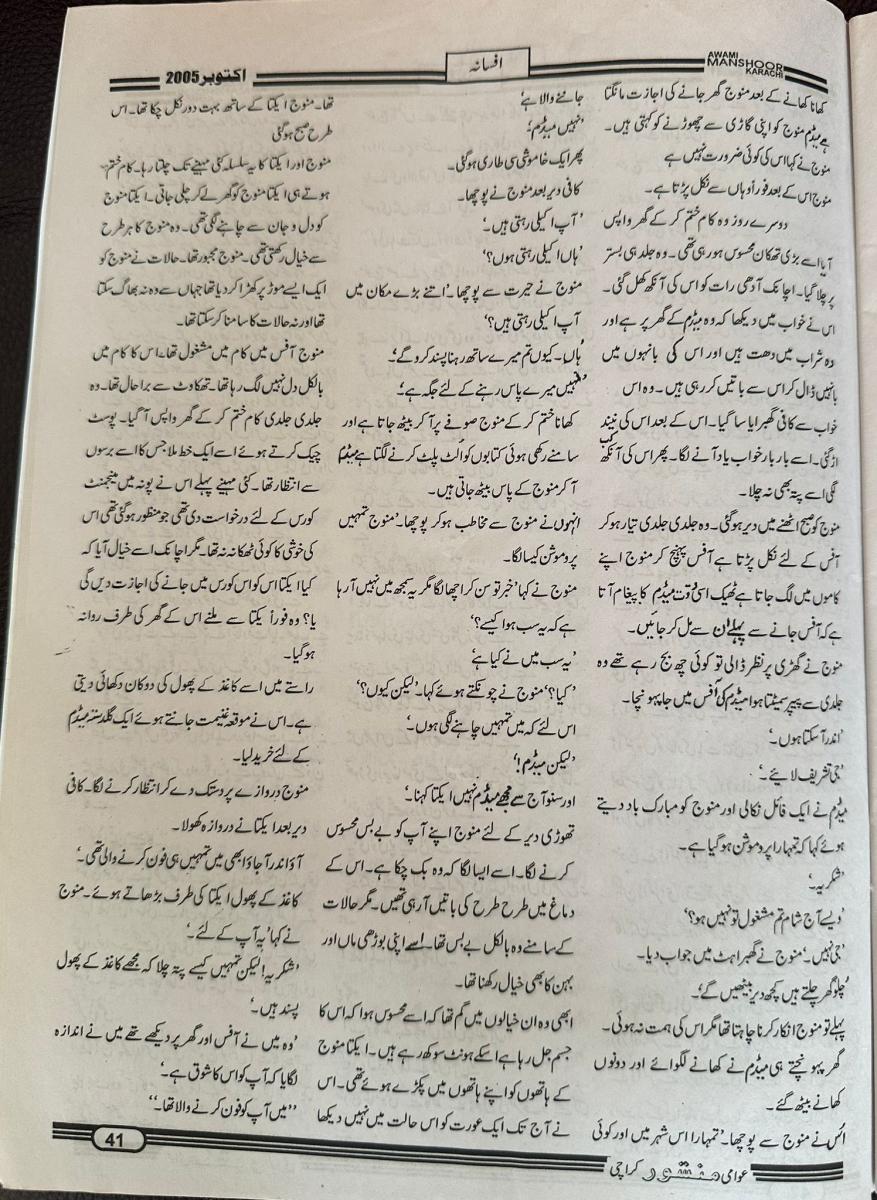 AWAMI
MANSHOOR
KARACHI
افسانہ
اکتوبر 2005
کھانا کھانے کے بعد منوج گھر جانے کی اجازت مانگتا
ہے میڈم منوج کو اپنی گاڑی سے چھوڑنے کو کہتی ہیں۔
منوج نے کہا اس کی کوئی ضرورت نہیں ہے
منوج اس کے بعد فوراً وہاں سے نکل پڑتا ہے۔
دوسرے روز وہ کام ختم کر کے گھر واپس
آیا اسے بڑی تھکان محسوس ہو رہی تھی۔ وہ جلد ہی بستر
پر چلا گیا۔ اچانک آدھی رات کو اس کی آنکھ کھل گئی۔
اس نے خواب میں دیکھا کہ وہ میڈم کے گھر پر ہے اور
وہ شراب میں دھت ہیں اور اس کی بانہوں میں
بانہیں ڈال کر اس سے باتیں کر رہی ہیں۔ وہ اس
خواب سے کافی گھبرایا سا گیا۔ اس کے بعد اس کی نیند
اڑ گئی۔ اسے بار بار خواب یاد آنے لگا۔ پھر اس کی آنکھ کب
لگی اسے پتہ بھی نہ چلا۔
منوج کو صبح اٹھنے میں دیر ہو گئی۔ وہ جلدی جلدی تیار ہو کر
آفس کے لئے نکل پڑتا ہے آفس پہنچ کر منوج اپنے
کاموں میں لگ جاتا ہے ٹھیک اسی وقت میڈم کا پیغام آتا
ہے کہ آفس جانے سے پہلے ان سے مل کر جائیں۔
منوج نے گھڑی پر نظر ڈالی تو کوئی چھ بج رہے تھے وہ
جلدی سے پیپر سمیٹتا ہوا میڈم کی آفس میں جا پہونچا۔
'اندر آ سکتا ہوں۔'
'جی تشریف لائیے۔'
میڈم نے ایک فائل نکالی اور منوج کو مبارک باد دیتے
ہوئے کہا کہ تمہارا پروموشن ہو گیا ہے۔
'شکریہ۔'
'ویسے آج شام تم مشغول تو نہیں ہو؟'
'جی نہیں۔' منوج نے گھبراہٹ میں جواب دیا۔
'چلو گھر چلتے ہیں کچھ دیر بیٹھیں گے'۔
پہلے تو منوج انکار کرنا چاہتا تھا مگر اس کی ہمت نہ ہوئی۔
گھر پہونچتے ہی میڈم نے کھانے لگوائے اور دونوں
کھانے بیٹھ گئے۔
اُس نے منوج سے پوچھا۔ 'تمہارا اس شہر میں اور کوئی
جاننے والا ہے'
'نہیں میڈم'!
پھر ایک خاموشی سی طاری ہو گئی۔
کافی دیر بعد منوج نے پوچھا۔
'آپ اکیلی رہتی ہیں۔'
'ہاں اکیلی رہتی ہوں؟'
منوج نے حیرت سے پوچھا 'اتنے بڑے مکان میں
آپ اکیلی رہتی ہیں؟'
'ہاں۔ کیوں تم میرے ساتھ رہنا پسند کرو گے'۔
'نہیں میرے پاس رہنے کے لئے جگہ ہے'۔
کھانا ختم کر کے منوج صوفے پر آ کر بیٹھ جاتا ہے اور
سامنے رکھی ہوئی کتابوں کو الٹ پلٹ کرنے لگتا ہے میڈم
آ کر منوج کے پاس بیٹھ جاتی ہیں۔
انہوں نے منوج سے مخاطب ہو کر پوچھا۔ 'منوج تمہیں
پروموشن کیسا لگا۔
منوج نے کہا 'خبر تو سن کر اچھا لگا مگر یہ سمجھ میں نہیں آ رہا
ہے کہ یہ سب ہوا کیسے؟'
'یہ سب میں نے کیا ہے'
'کیا؟' منوج نے چونکتے ہوئے کہا۔ 'لیکن کیوں؟'
اس لئے کہ میں تمہیں چاہنے لگی ہوں۔'
'لیکن میڈم!'
اور سنو آج سے مجھے میڈم نہیں ایکتا کہنا۔'
تھوڑی دیر کے لئے منوج اپنے آپ کو بے بس محسوس
کرنے لگا۔ اسے ایسا لگا کہ وہ بک چکا ہے۔ اس کے
دماغ میں طرح طرح کی باتیں آ رہی تھیں۔ مگر حالات
کے سامنے وہ بالکل بے بس تھا۔ اسے اپنی بوڑھی ماں اور
بہن کا بھی خیال رکھنا تھا۔
ابھی وہ ان خیالوں میں گم تھا کہ اسے محسوس ہوا کہ اس کا
جسم جل رہا ہے اسکے ہونٹ سوکھ رہے ہیں۔ ایکتا منوج
کے ہاتھوں کو اپنے ہاتھوں میں پکڑے ہوئے تھی۔ اس
نے آج تک ایک عورت کو اس حالت میں نہیں دیکھا
تھا۔ منوج ایکتا کے ساتھ بہت دور نکل چکا تھا۔ اس
طرح صبح ہو گئی
منوج اور ایکتا کا یہ سلسلہ کئی مہینے تک چلتا رہا۔ کام ختم
ہوتے ہی ایکتا منوج کو گھر لے کر چلی جاتی۔ ایکتا منوج
کو دل و جان سے چاہنے لگی تھی۔ وہ منوج کا ہر طرح
سے خیال رکھتی تھی۔ منوج مجبور تھا۔ حالات نے منوج کو
ایک ایسے موڑ پر کھڑا کر دیا تھا جہاں سے وہ نہ بھاگ سکتا
تھا اور نہ حالات کا سامنا کر سکتا تھا۔
منوج آفس میں کام میں مشغول تھا۔ اس کا کام میں
بالکل دل نہیں لگ رہا تھا۔ تھکاوٹ سے برا حال تھا۔ وہ
جلدی جلدی کام ختم کر کے گھر واپس آ گیا۔ پوسٹ
چیک کرتے ہوئے اسے ایک خط ملا جس کا اسے برسوں
سے انتظار تھا۔ کئی مہینے پہلے اس نے پونہ میں مینجمنٹ
کورس کے لئے درخواست دی تھی جو منظور ہو گئی تھی اس
کی خوشی کا کوئی ٹھکانہ نہ تھا۔ مگر اچانک اسے خیال آیا کہ
کیا ایکتا اس کو اس کورس میں جانے کی اجازت دیں گی
یا؟ وہ فوراً ایکتا سے ملنے اس کے گھر کی طرف روانہ
ہو گیا۔
راستے میں اسے کاغذ کے پھول کی دوکان دکھائی دیتی
ہے۔ اس نے موقعہ غنیمت جانتے ہوئے ایک گلدستہ میڈم
کے لئے خرید لیا۔
منوج دروازے پر دستک دے کر انتظار کرنے لگا۔ کافی
دیر بعد ایکتا نے دروازہ کھولا۔
آؤ اندر آ جاؤ ابھی میں تمہیں ہی فون کرنے والی تھی۔'
کاغذ کے پھول ایکتا کی طرف بڑھاتے ہوئے۔ منوج
نے کہا 'یہ آپ کے لئے۔'
'شکریہ! لیکن تمہیں کیسے پتہ چلا کہ مجھے کاغذ کے پھول
پسند ہیں۔'
'وہ میں نے آفس اور گھر پر دیکھے تھے میں نے اندازہ
لگایا کہ آپ کو اس کا شوق ہے۔'
''میں آپ کو فون کرنے والا تھا۔''
عوامی منشور کراچی
41